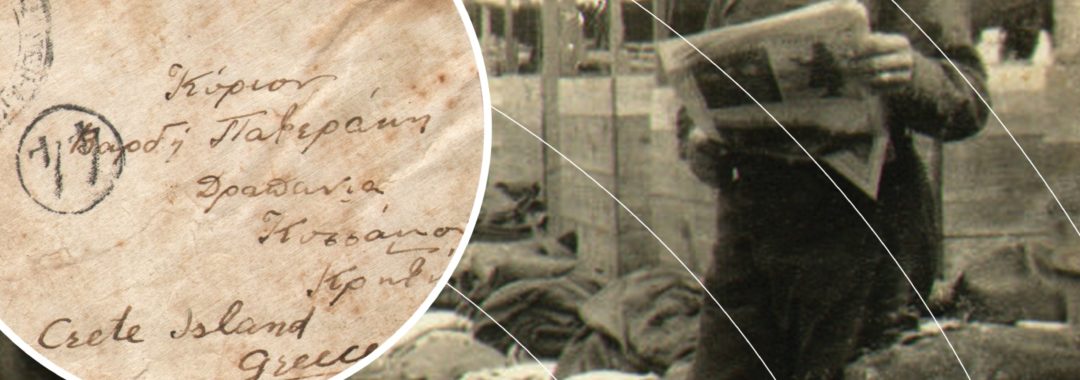 Κύριον
Βαρδή Πατεράκη
Δραπανιά
Κισσάμου
Κρήτη
Crete Island
Greece